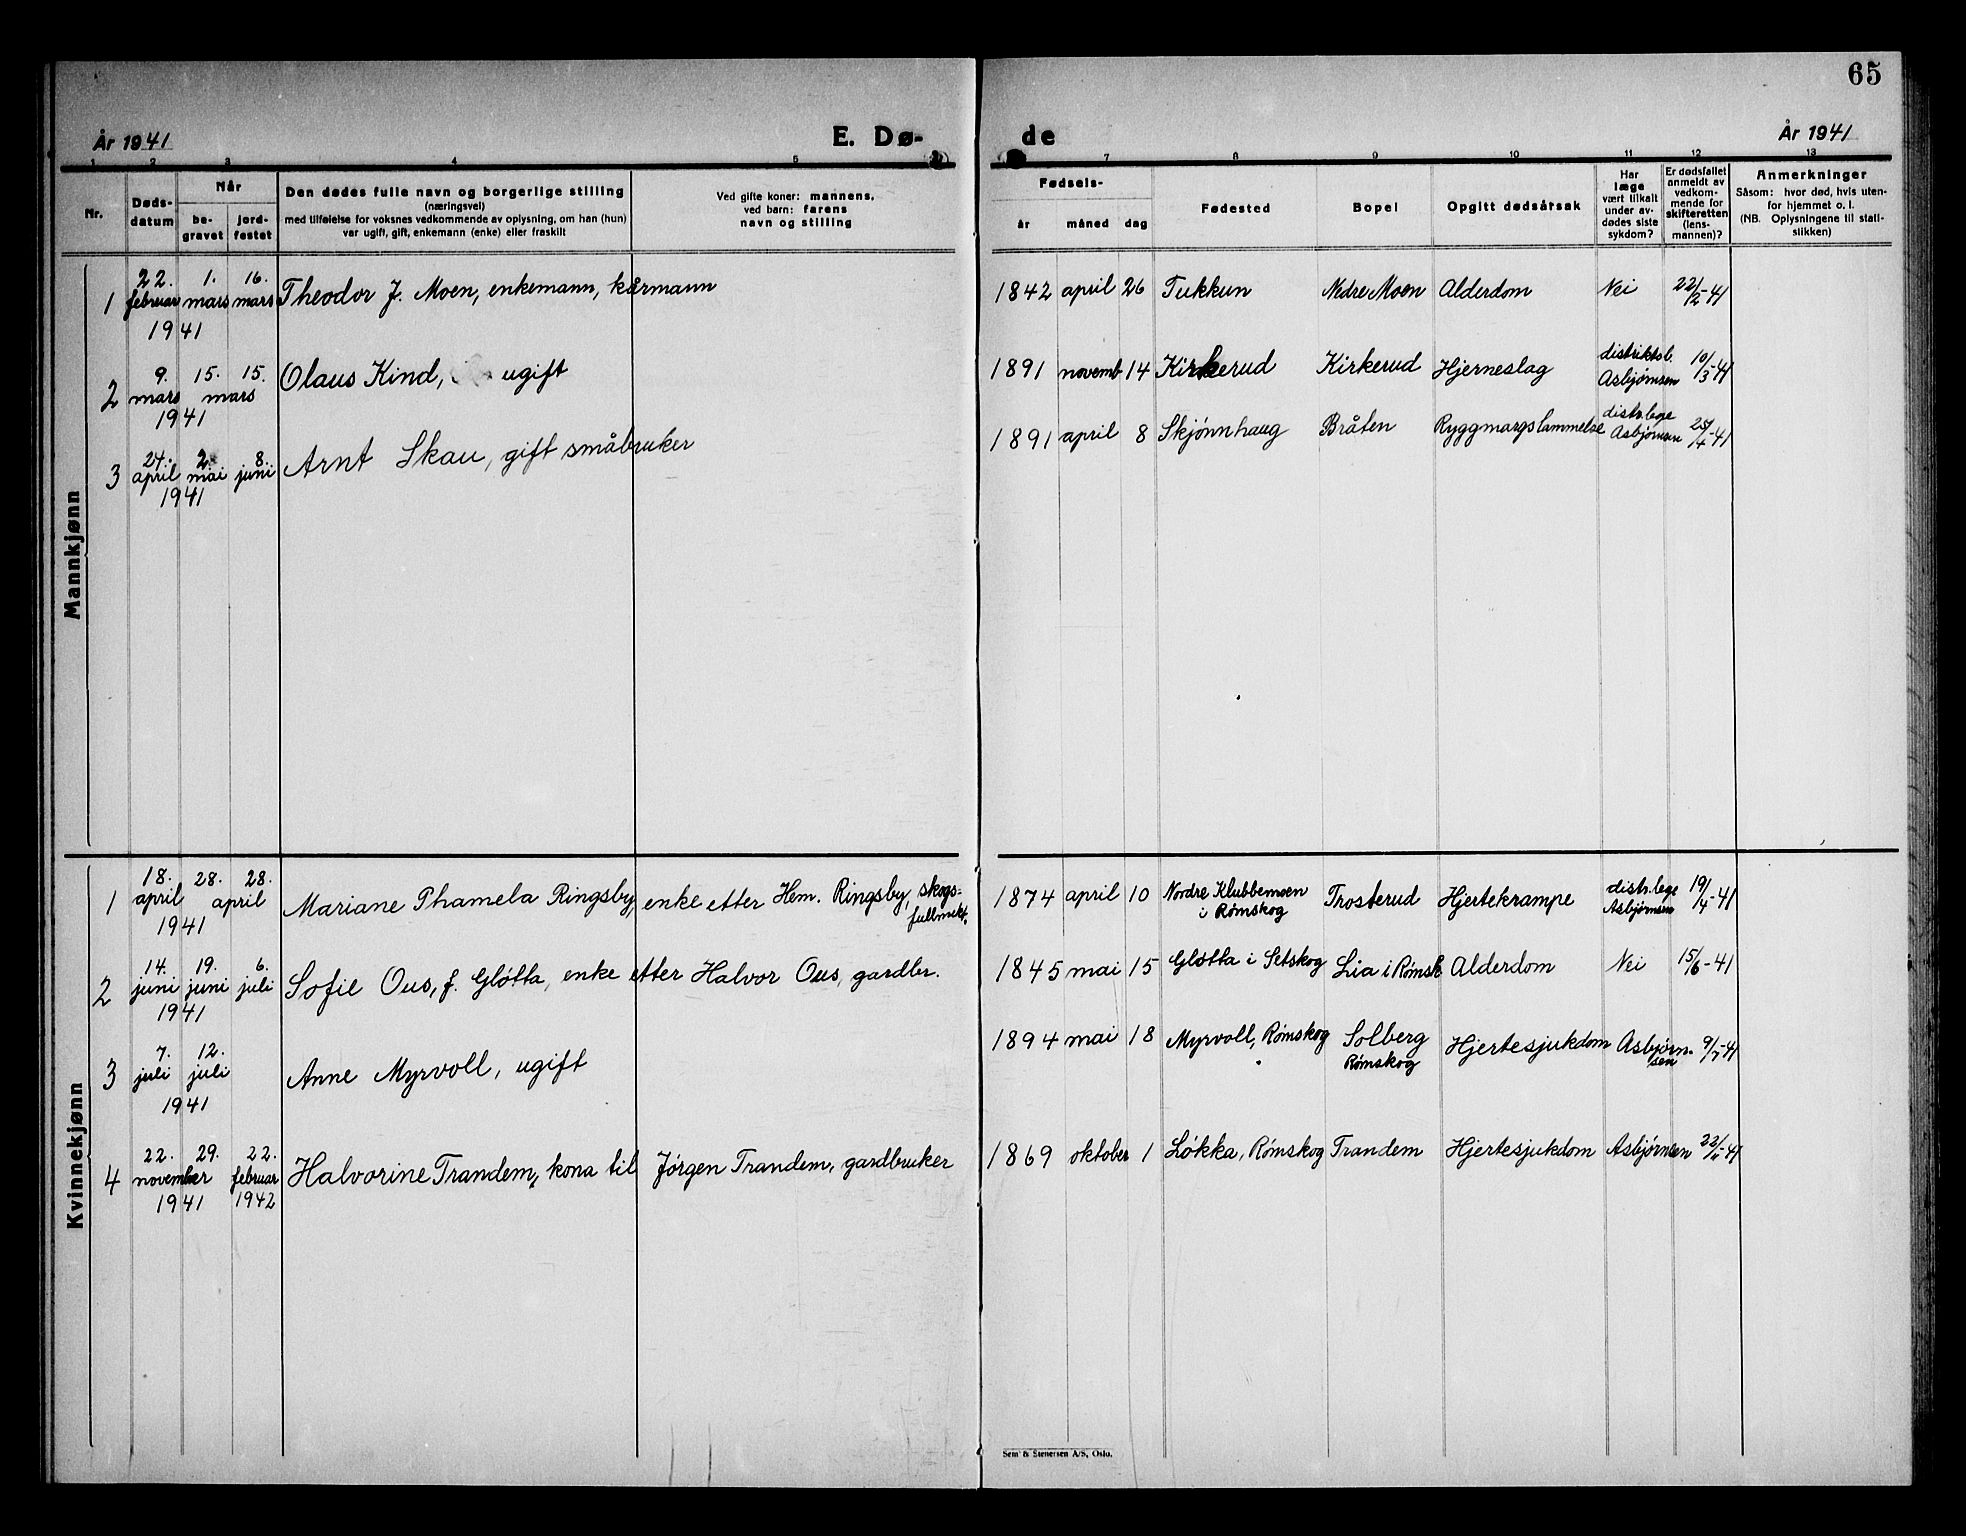 65
År 1941 E. Dø- de År 1941
1 2 3 4 5 7 8 9 10 11 12 13
Nr.
Døds-
datum
Når
be-
gravet
jord-
festet
Den dødes fulle navn og borgerlige stilling
(næringsvei)
med tilføielse for voksnes vedkommende av oplysning, om han (hun)
var ugift, gift, enkemann (enke) eller fraskilt
Ved gifte koner: mannens,
ved barn: farens
navn og stilling
Fødsels-
år måned dag
Fødested
Bopel
Opgitt dødsårsak
Har
læge
vært tilkalt
under av-
dødes siste
sykdom?
Er dødsfallet
anmeldt av
vedkom-
mende for
skifteretten
(lens-
mannen)?
Anmerkninger
Såsom: hvor død, hvis uten-
for hjemmet o. l.
(NB. Oplysningene til stati-
stikken)
Mannkjønn
22. 1. 16.
1 februar mars mars Theodor J. Moen, enkemann, kårmann 1842 april 26 Tukkun Nedre Moen Alderdom Nei 22/2-41
1941
9. 15. 15. Olaus Kind, ugift 1891 novemb 14 Kirkerud Kirkerud Hjerneslag distriktsl. 10/3-41
2 mars mars Asbjørnsen
1941
24. 2. 8. Arnt Skau, gift småbruker 1891 april 8 Skjønnhaug Bråten Ryggmargslammelse distr.lege 25/4-41
3 april mai juni Asbjørnsen
1941
Kvinnekjønn
18. 28. 28. skogs-
1 april april Mariane Thamela Ringsby, enke etter Hem. Ringsby, fullmekt. 1874 april 10 Nordre Klubbemoen Trosterud Hjertekrampe distr.lege 19/4-41
1941 i Rømskog Asbjørnsen
14. 19. 6.
2 juni juni juli Sofie Ous, f. Gløtta, enke etter Halvor Ous, gardbr. 1845 mai 15 Gløtta i Setskog Lia i Rømsk Alderdom Nei 15/6-41
1941
7. 12.
3 juli juli Anne Myrvoll, ugift 1894 mai 18 Myrvoll, Rømskog Solberg Hjertesjukdom Asbjørn- 9/7-41
1941 Rømskog sen
22. 29. 22.
4 november februar Halvorine Trandem, kona til Jørgen Trandem, gardbruker 1869 oktober 1 Løkka, Rømskog Trandem Hjertesjukdom Asbjørnsen 22/11-41
1941 1942
Sem & Stenersen A/S, Oslo.